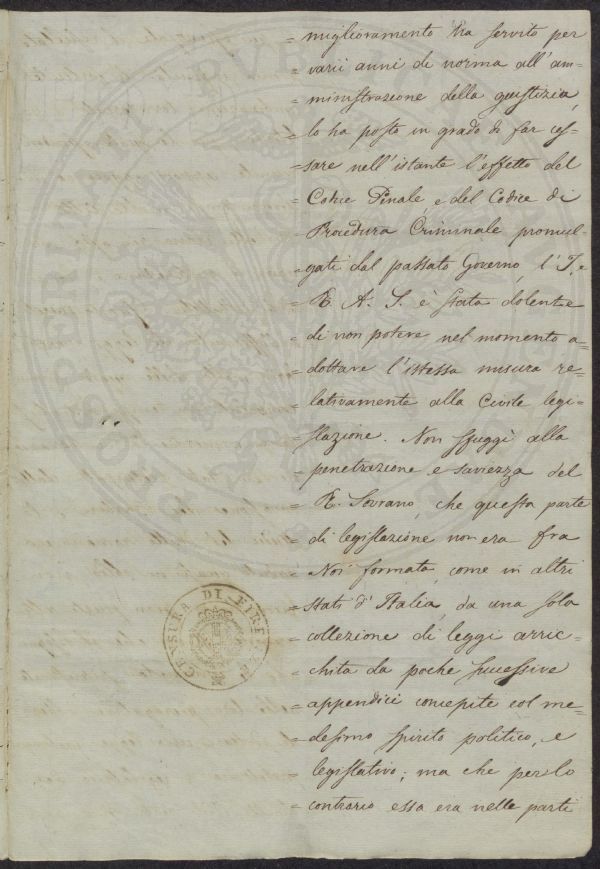 = miglioramento ha servito per
= varii anni di norma all'am-
= ministrazione della giustizia,
= lo ha posto in grado di far ces-
= sare nell'istante l'effetto del
= Codice Penale, e del Codice di
= Procedura Criminale promul-
= gati dal passato Governo, l'I. e
= R. A. S. è stata dolente
= di non potere nel momento a=
= dottare l'istessa misura re-
= lativamente alla Civile legi-
= slazione. Non sfuggì alla
= penetrazione e saviezza del
= R. Sovrano, che questa parte
= di legislazione non era fra
= Noi formata, come in altri
= stati d'Italia, da una sola
= collezione di leggi arric-
= chita da poche successive
= appendici concepite col me-
= desimo spirito politico, e
= legislativo; ma che per lo
= contrario essa era nelle parti
CENSURA DI FIRENZE